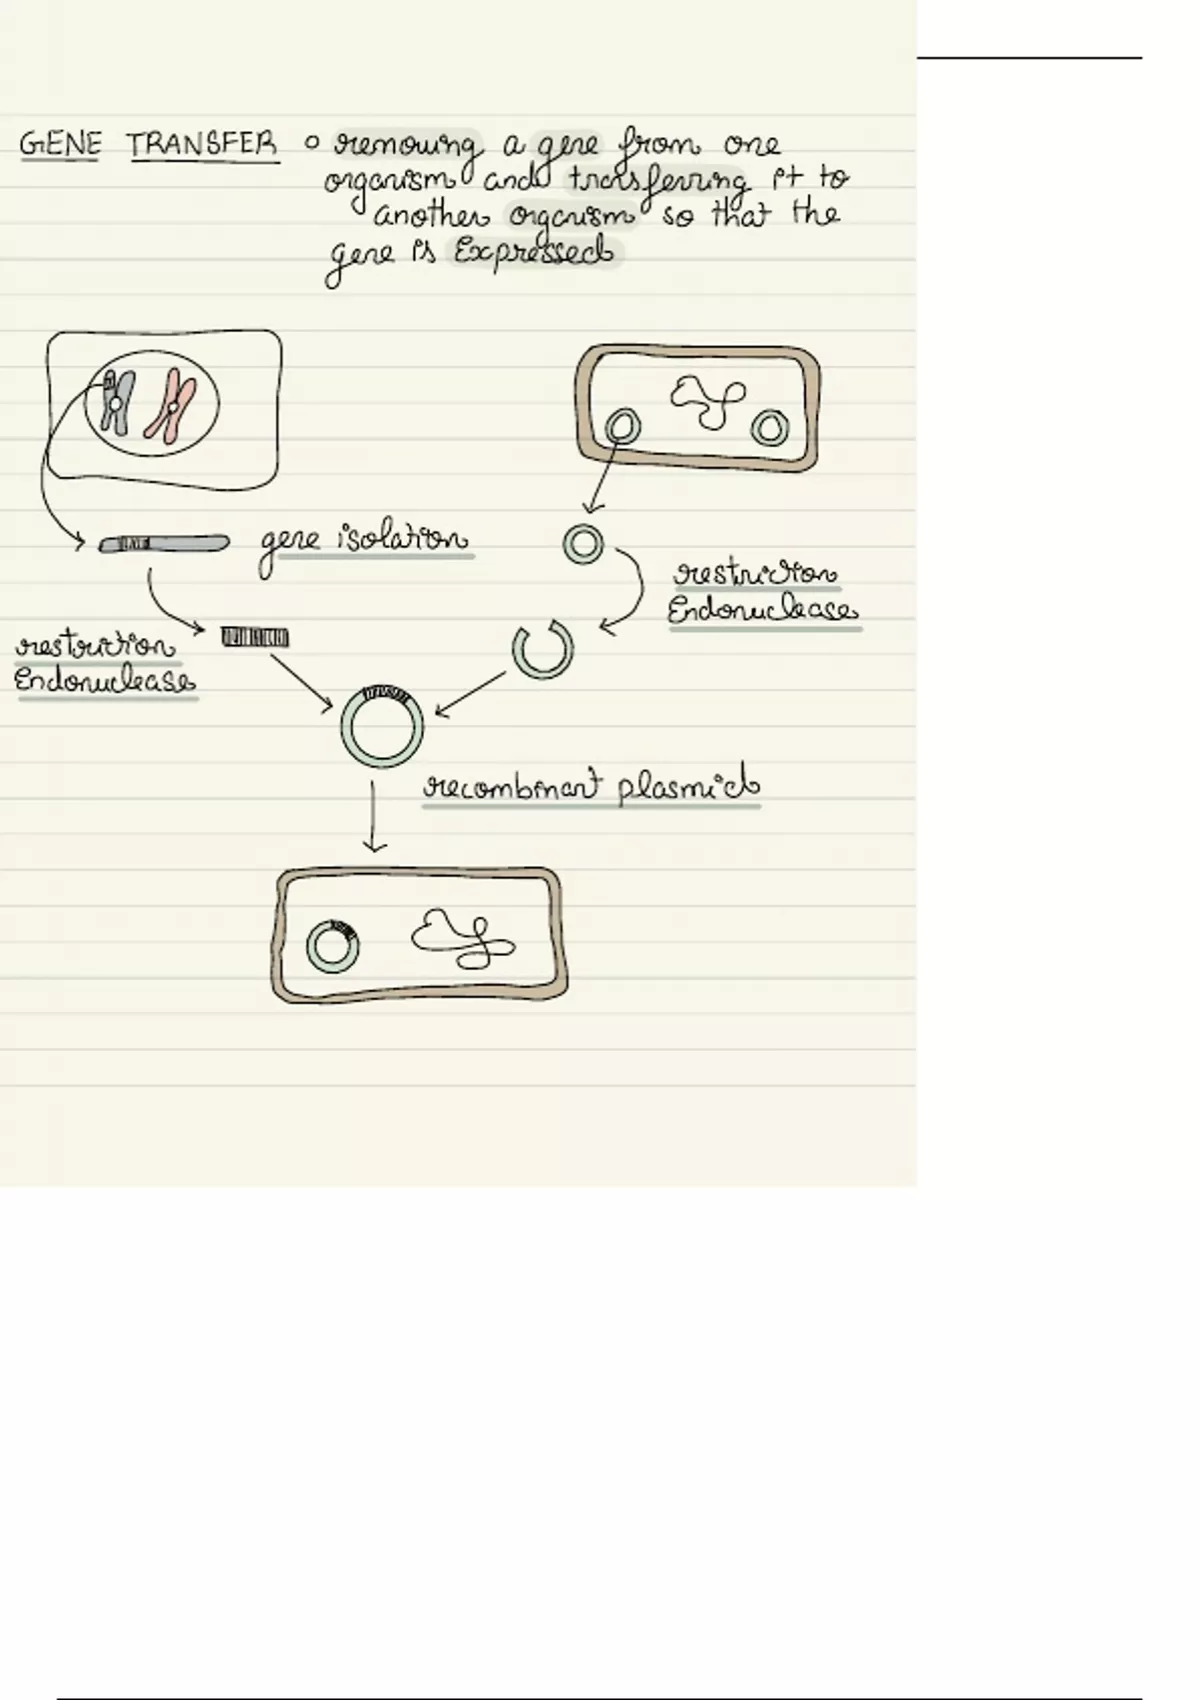 GENE TRANSFER o removing a gene from one
organism and transferring it to
another organism so that the
gene is Expressed
gene isolation
restriction
Endonuclease
restriction
Endonuclease
recombinant plasmid